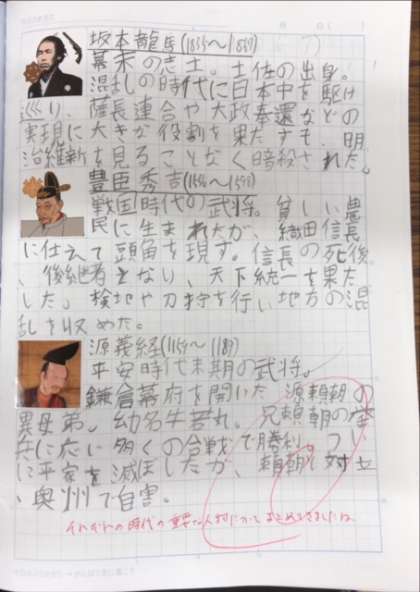 坂本龍馬(1835~1867)
幕末の志士。土佐の出身。
混乱の時代に日本中を駆け
巡り、薩長連合や大政奉還などの
実現に大きな役割を果たすも、明
治維新を見ることなく暗殺された。
豊臣秀吉
戦国時代の武将。貧しい農
民に生まれたが、織田信長
に仕えて頭角を現す。信長の死後
、後継者となり、天下統一を果た
した。検地や刀狩を行い地方の混
乱を収めた。
源義経(1159~1189)
平安時代末期の武将。
鎌倉幕府を開いた源頼朝の
異母弟。幼名牛若丸。兄頼朝の挙
兵に応じ多くの合戦で勝利。つい
に平家を滅亡したが、頼朝と対立
、奥州で自害。
それぞれの時代の重要な人物についてまとめてきましたね